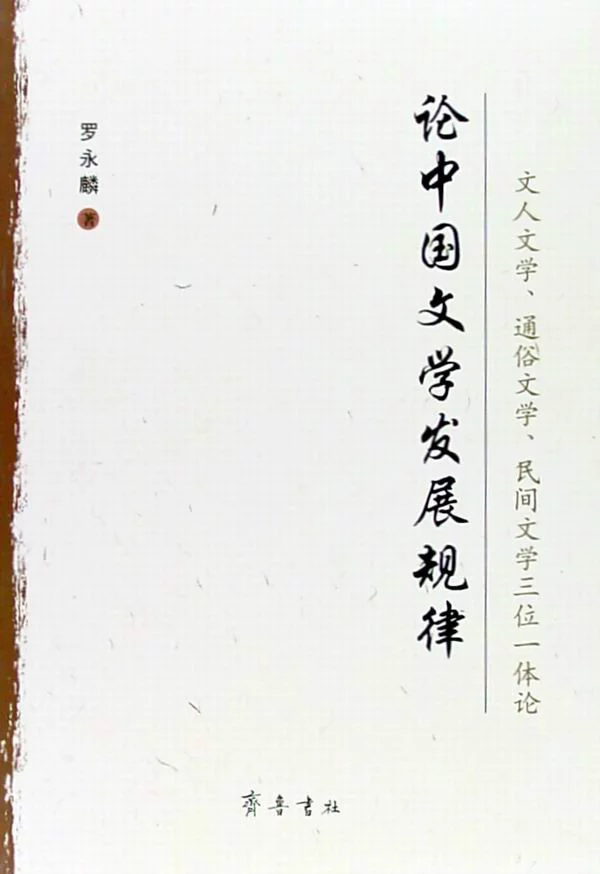 文人文学、通俗文学、民间文学三位一体论
论中国文学发展规律
罗永麟 著
齊鲁書社